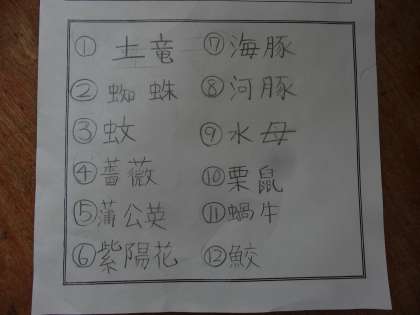 ① 土竜
② 蜘蛛
③ 蚊
④ 薔薇
⑤ 蒲公英
⑥ 紫陽花
⑦ 海豚
⑧ 河豚
⑨ 水母
⑩ 栗鼠
⑪ 蝸牛
⑫ 鮫